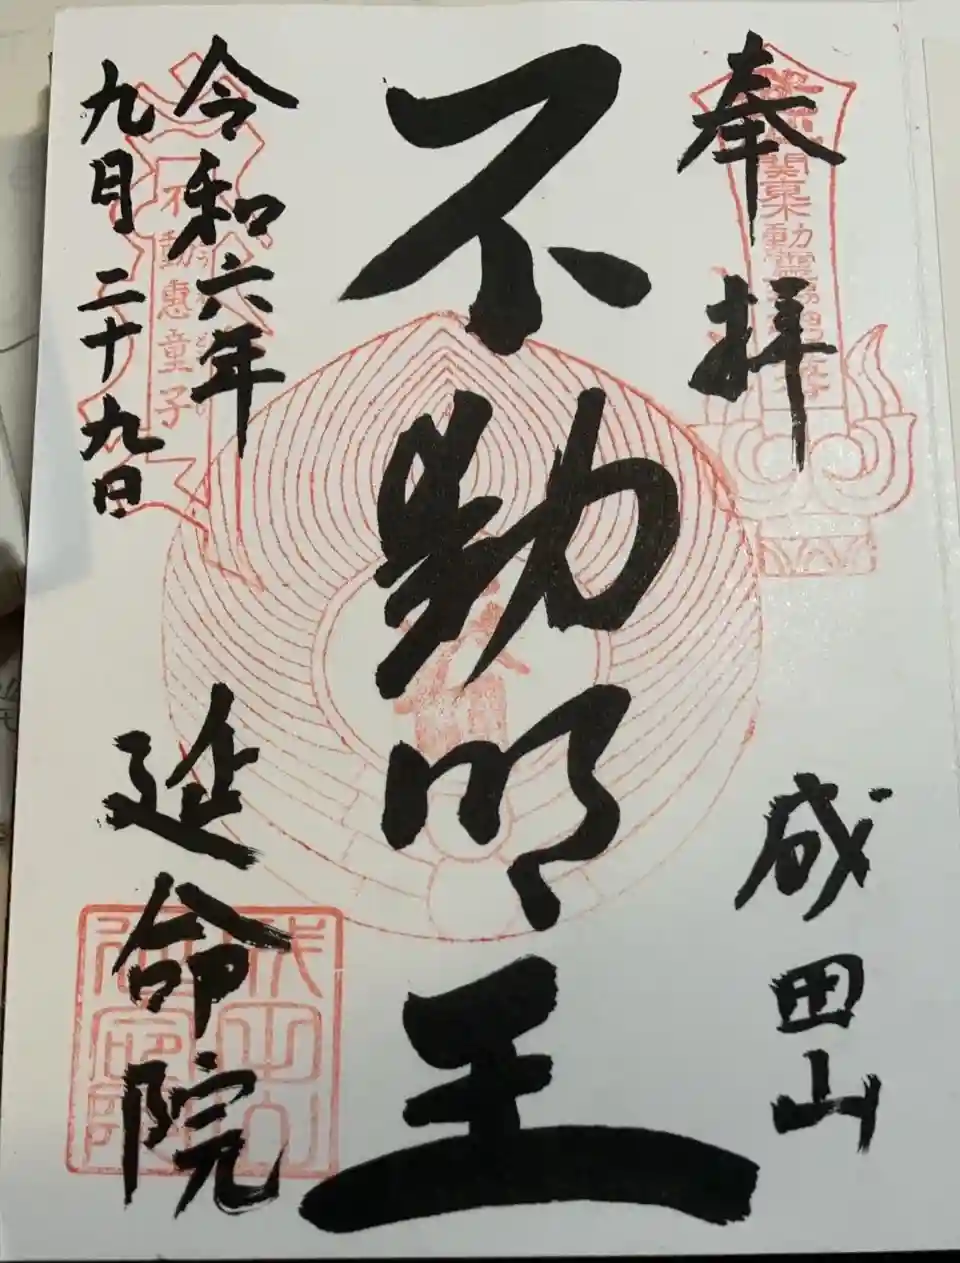 奉拝
成田山
不動明王
令和六年
九月二十九日
延命院
関東
動霊場
不動恵童子